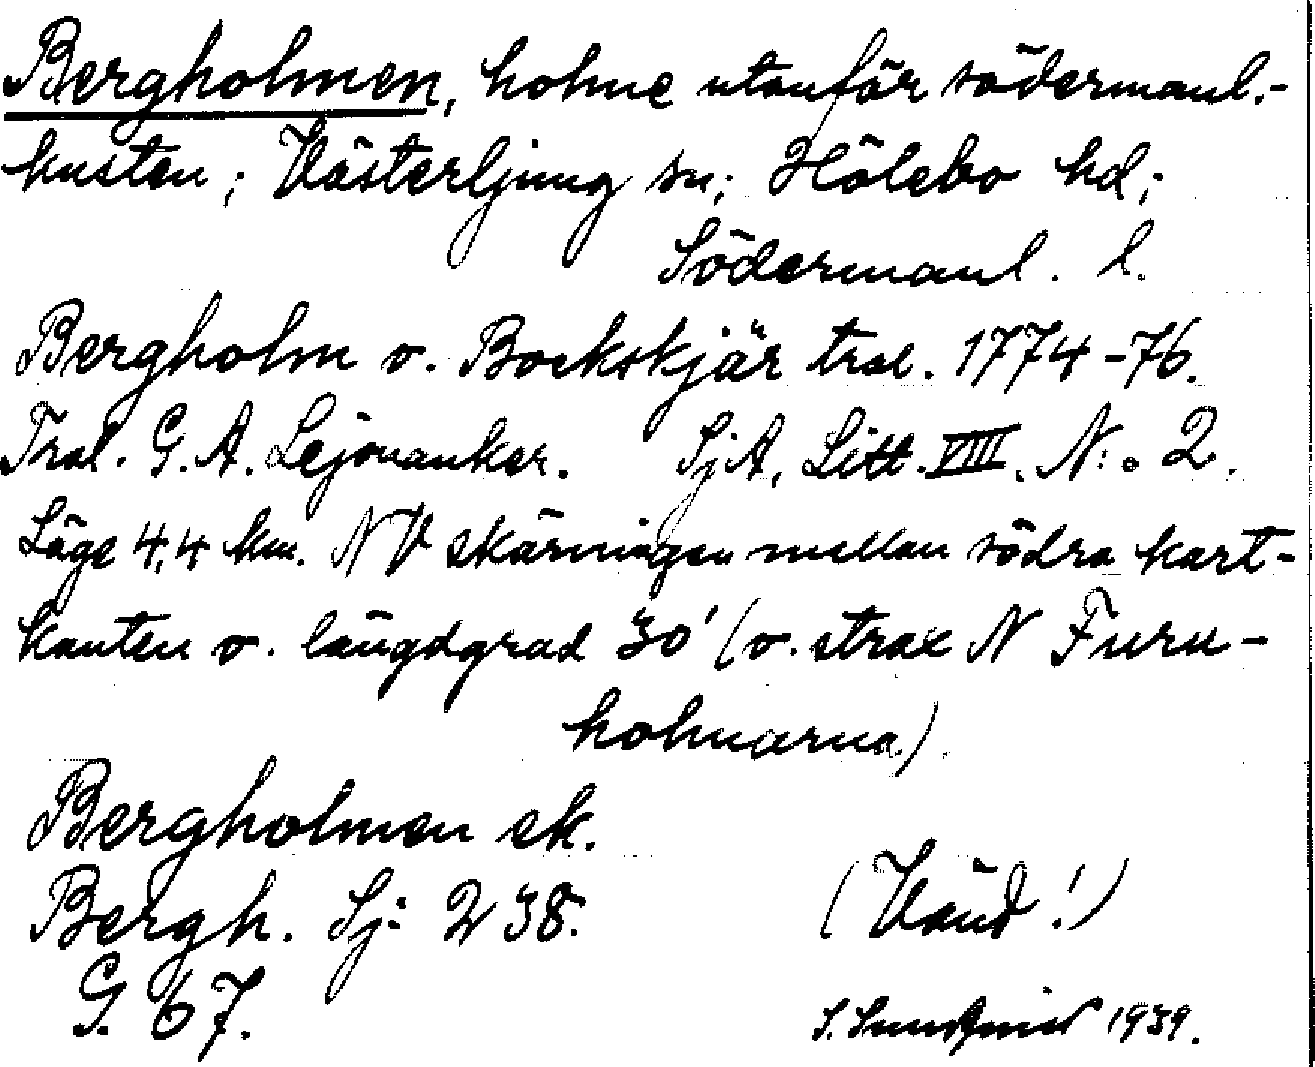 Bergholmen, holme utanför södermanl.-
kusten; Västerljung sn; Hölebo hd;
Södermanl. l.
Bergholm o. Bockskjär trol. 1774-76.
Trol. G. A. Lejonanker. SjA, Litt. VIII. N:o 2.
Läge 4,4 km. NV skärningen mellan södra kart-
kanten o. längdgrad 30' (o. strax N Furu-
holmarna).
Bergholmen ek.
Bergh. Sj: 238.
G. 67.
(Vänd!)
S. 1939.